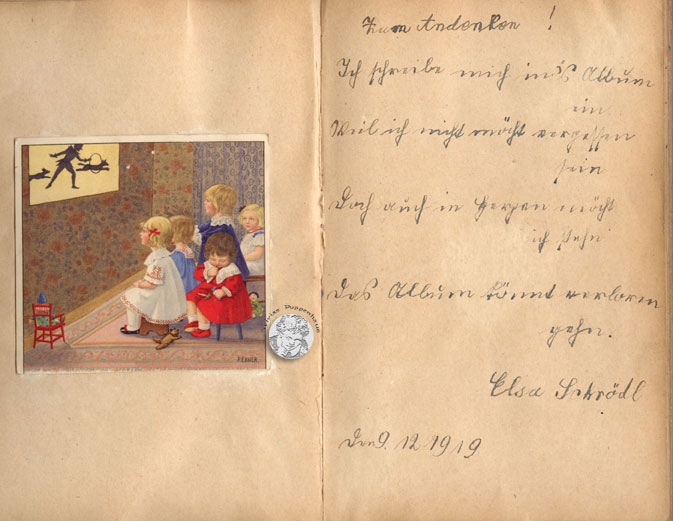 P. EBNER
Ulrikes Puppenhaus
Zum Andenken !
Ich schreibe mich in's Album
ein
Weil ich nicht möcht vergessen
sein
Doch auch in Herzen möcht
ich stehn
Das Album könnt verloren
gehn.
Elsa Schrödl
Den 9. 12 1919